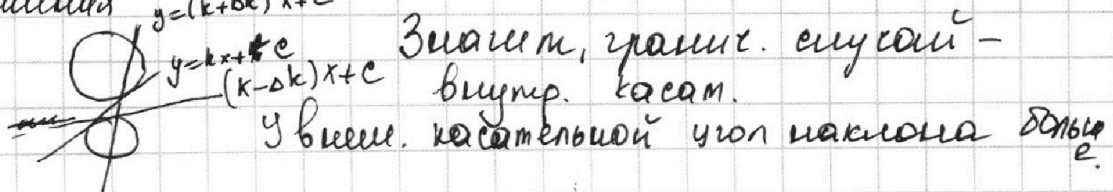 y=(k+Δk)x+c
y=kx+c
(k-Δk)x+c
Значит, гранич. случай -
внутр. касат.
У внеш. касательной угол наклона больше.